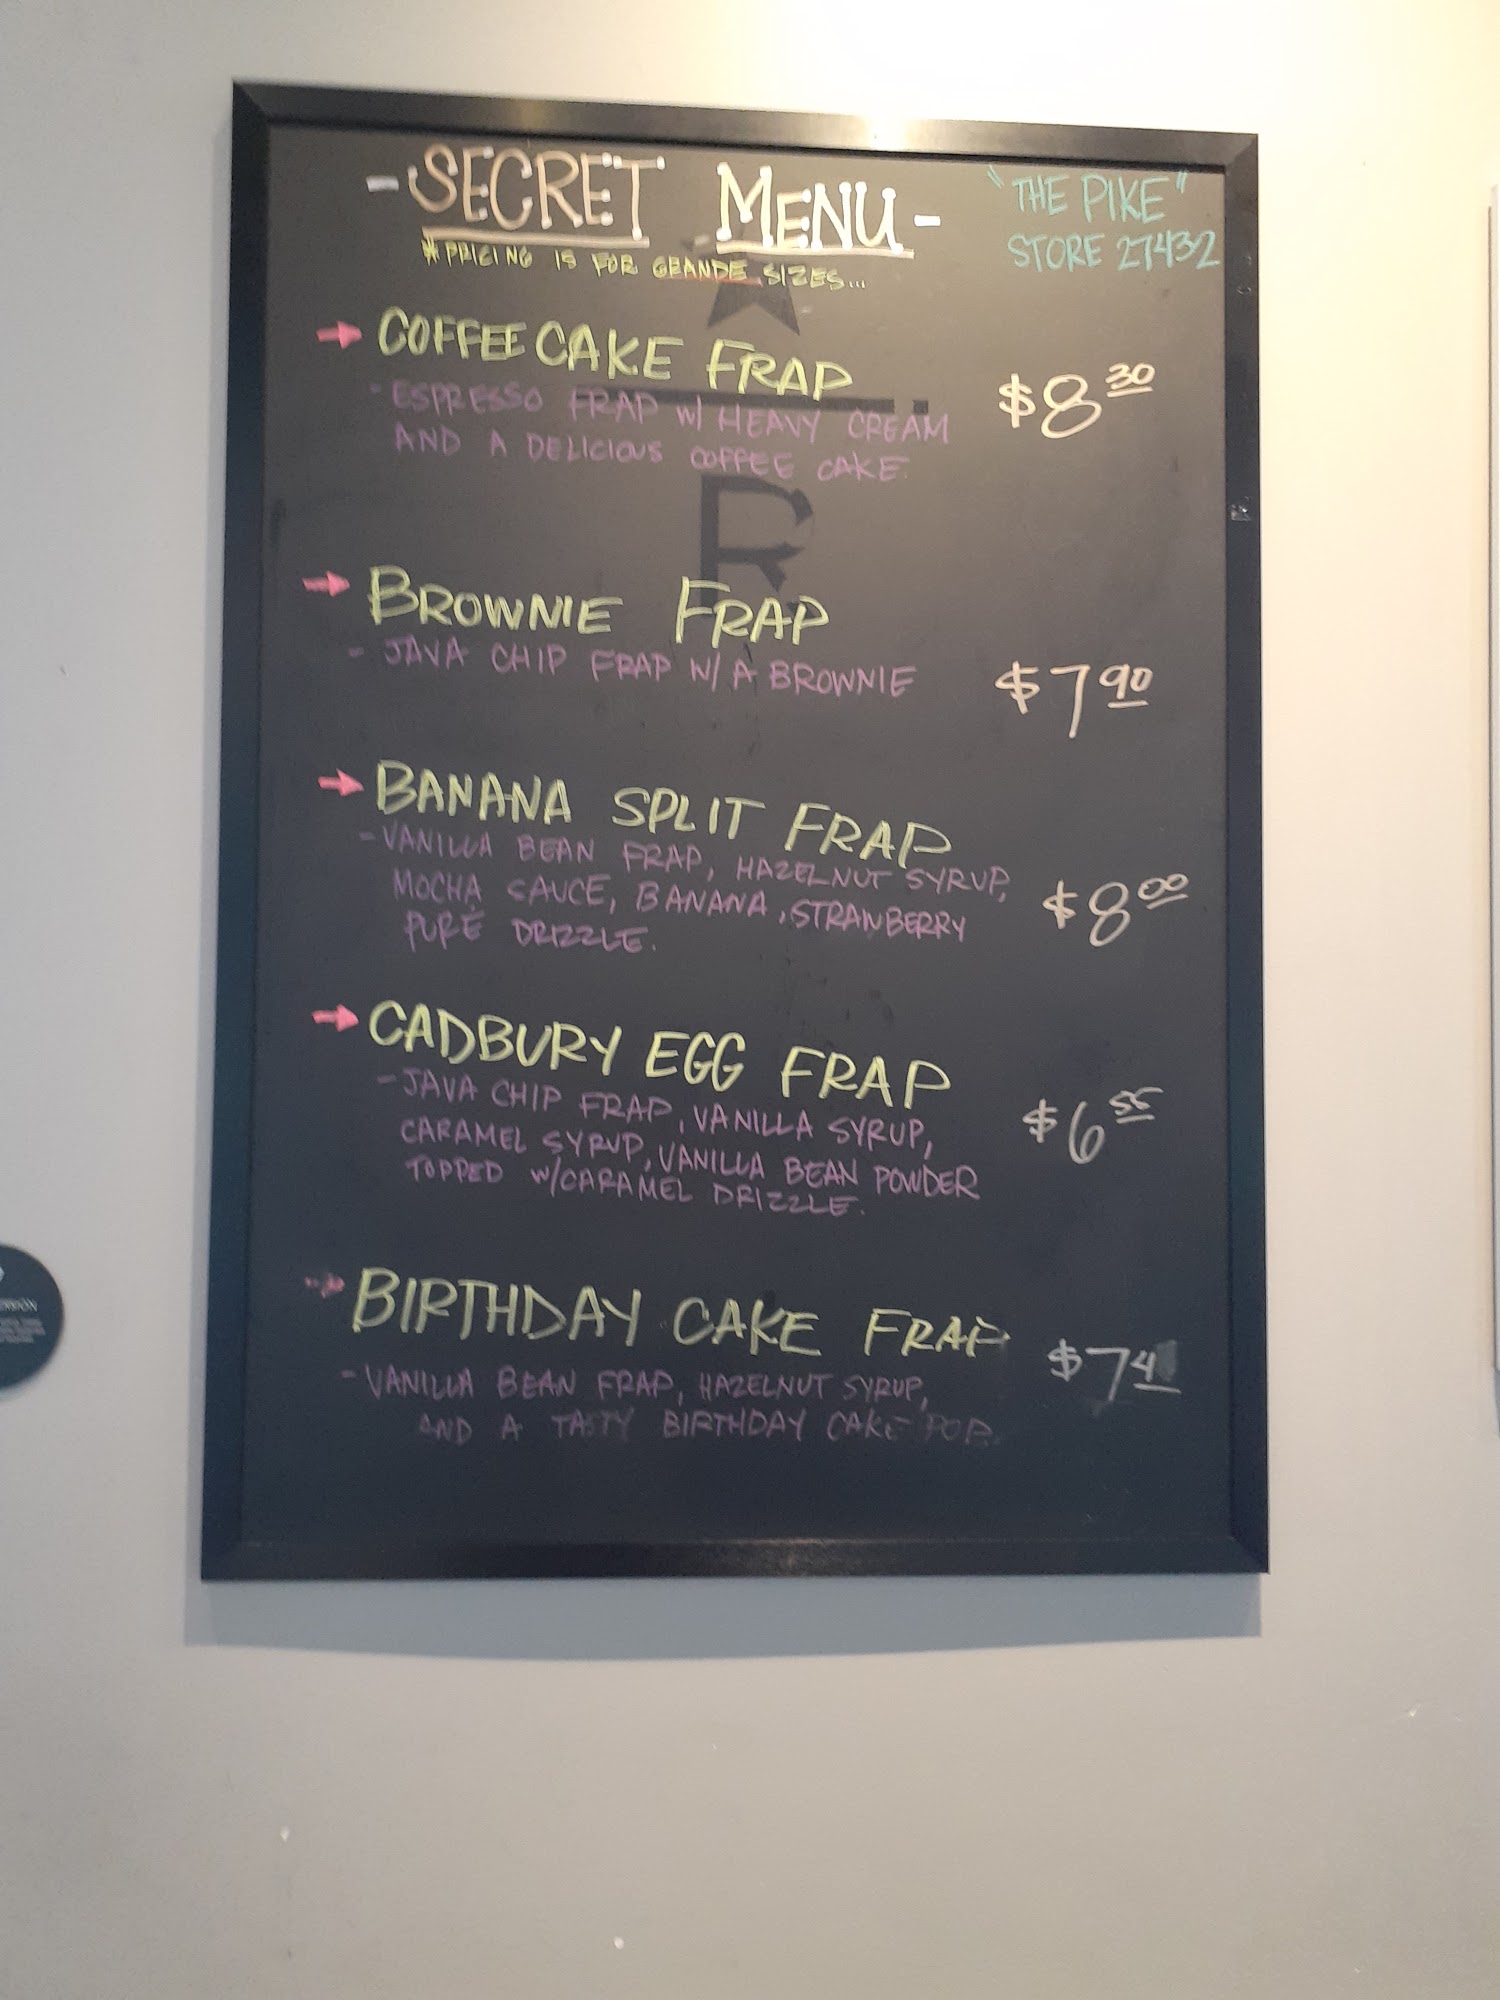 - SECRET MENU -
"THE PIKE"
STORE 27432
*PRICING IS FOR GRANDE SIZES...
→ COFFEE CAKE FRAP
- ESPRESSO FRAP W/ HEAVY CREAM
AND A DELICIOUS COFFEE CAKE.
$8 30
R
→ BROWNIE FRAP
- JAVA CHIP FRAP W/ A BROWNIE
$7 90
→ BANANA SPLIT FRAP
- VANILLA BEAN FRAP, HAZELNUT SYRUP,
MOCHA SAUCE, BANANA, STRAWBERRY
PURÉ DRIZZLE.
$8 00
→ CADBURY EGG FRAP
- JAVA CHIP FRAP, VANILLA SYRUP,
CARAMEL SYRUP, VANILLA BEAN POWDER
TOPPED W/CARAMEL DRIZZLE.
$6 55
→ BIRTHDAY CAKE FRAP
- VANILLA BEAN FRAP, HAZELNUT SYRUP,
AND A TASTY BIRTHDAY CAKE POP.
$7 4